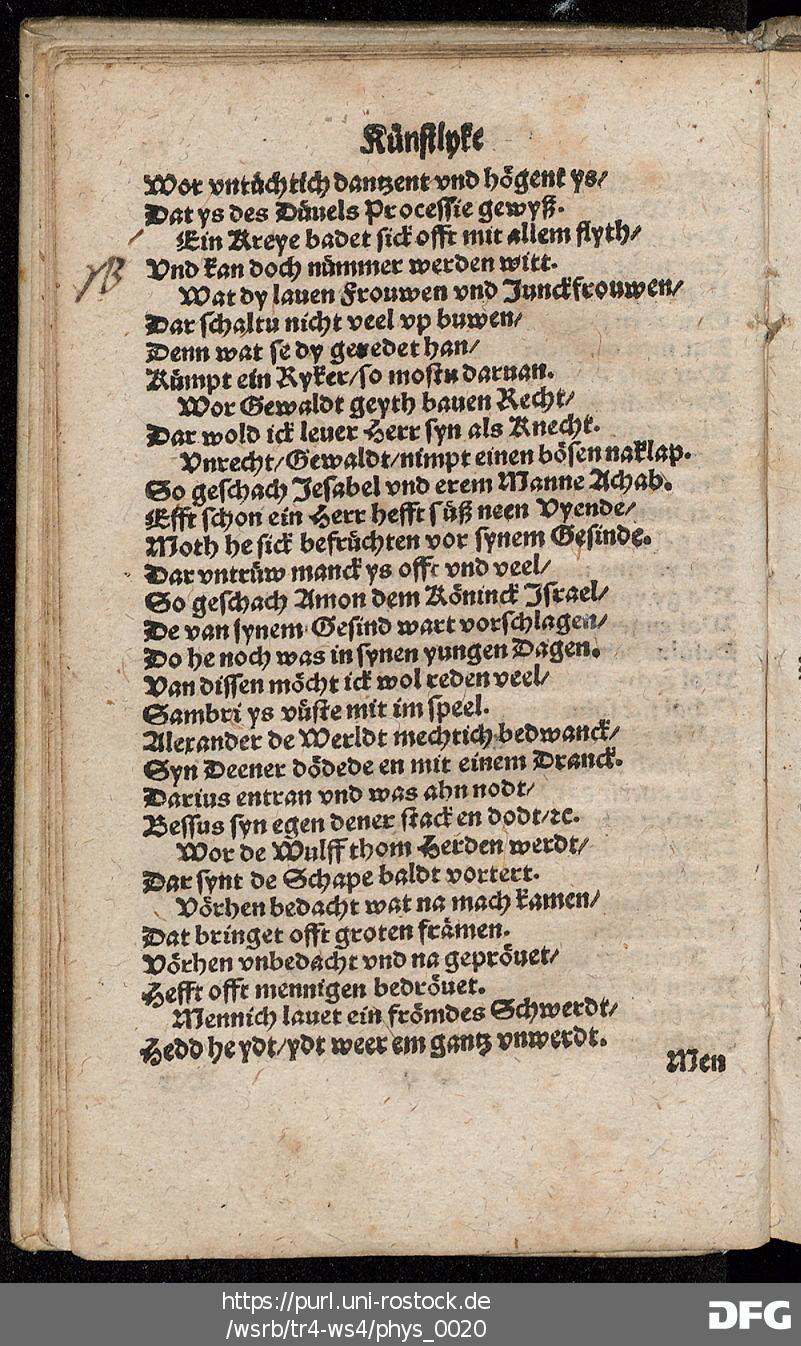 Künstlyke
Wor vntüchtich dantzent vnd högent ys/
Dat ys des Düuels Processie gewyß.
Ein Kreye badet sick offt mit allem flyth/
Vnd kan doch nümmer werden witt.
Wat dy lauen Frouwen vnd Junckfrouwen/
Dar schaltu nicht veel vp buwen/
Denn wat se dy geredet han/
Kümpt ein Ryker/so mostu daruan.
Wor Gewaldt geyth bauen Recht/
Dar wold ick leuer Herr syn als Knecht.
Vnrecht/Gewaldt/nimpt einen bösen naklap.
So geschach Jesabel vnd erem Manne Achab.
Efft schon ein Herr hefft süß neen Vyende/
Moth he sick befrüchten vor synem Gesinde.
Dar vntrüw manck ys offt vnd veel/
So geschach Amon dem Köninck Israel/
De van synem Gesind wart vorschlagen/
Do he noch was in synen yungen Dagen.
Van dissen möcht ick wol reden veel/
Sambri ys vüste mit im speel.
Alexander de Werldt mechtich bedwanck/
Syn Deener dödede en mit einem Dranck.
Darius entran vnd was ahn nodt/
Bessus syn egen dener stack en dodt/ꝛc.
Wor de Wulff thom Herden werdt/
Dar synt de Schape baldt vortert.
Vörhen bedacht wat na mach kamen/
Dat bringet offt groten främen.
Vörhen vnbedacht vnd na gepröuet/
Hefft offt mennigen bedröuet.
Mennich lauet ein frömdes Schwerdt/
Hedd he ydt/ydt weer em gantz vnwerdt.
Men
https://purl.uni-rostock.de
/wsrb/tr4-ws4/phys_0020
DFG